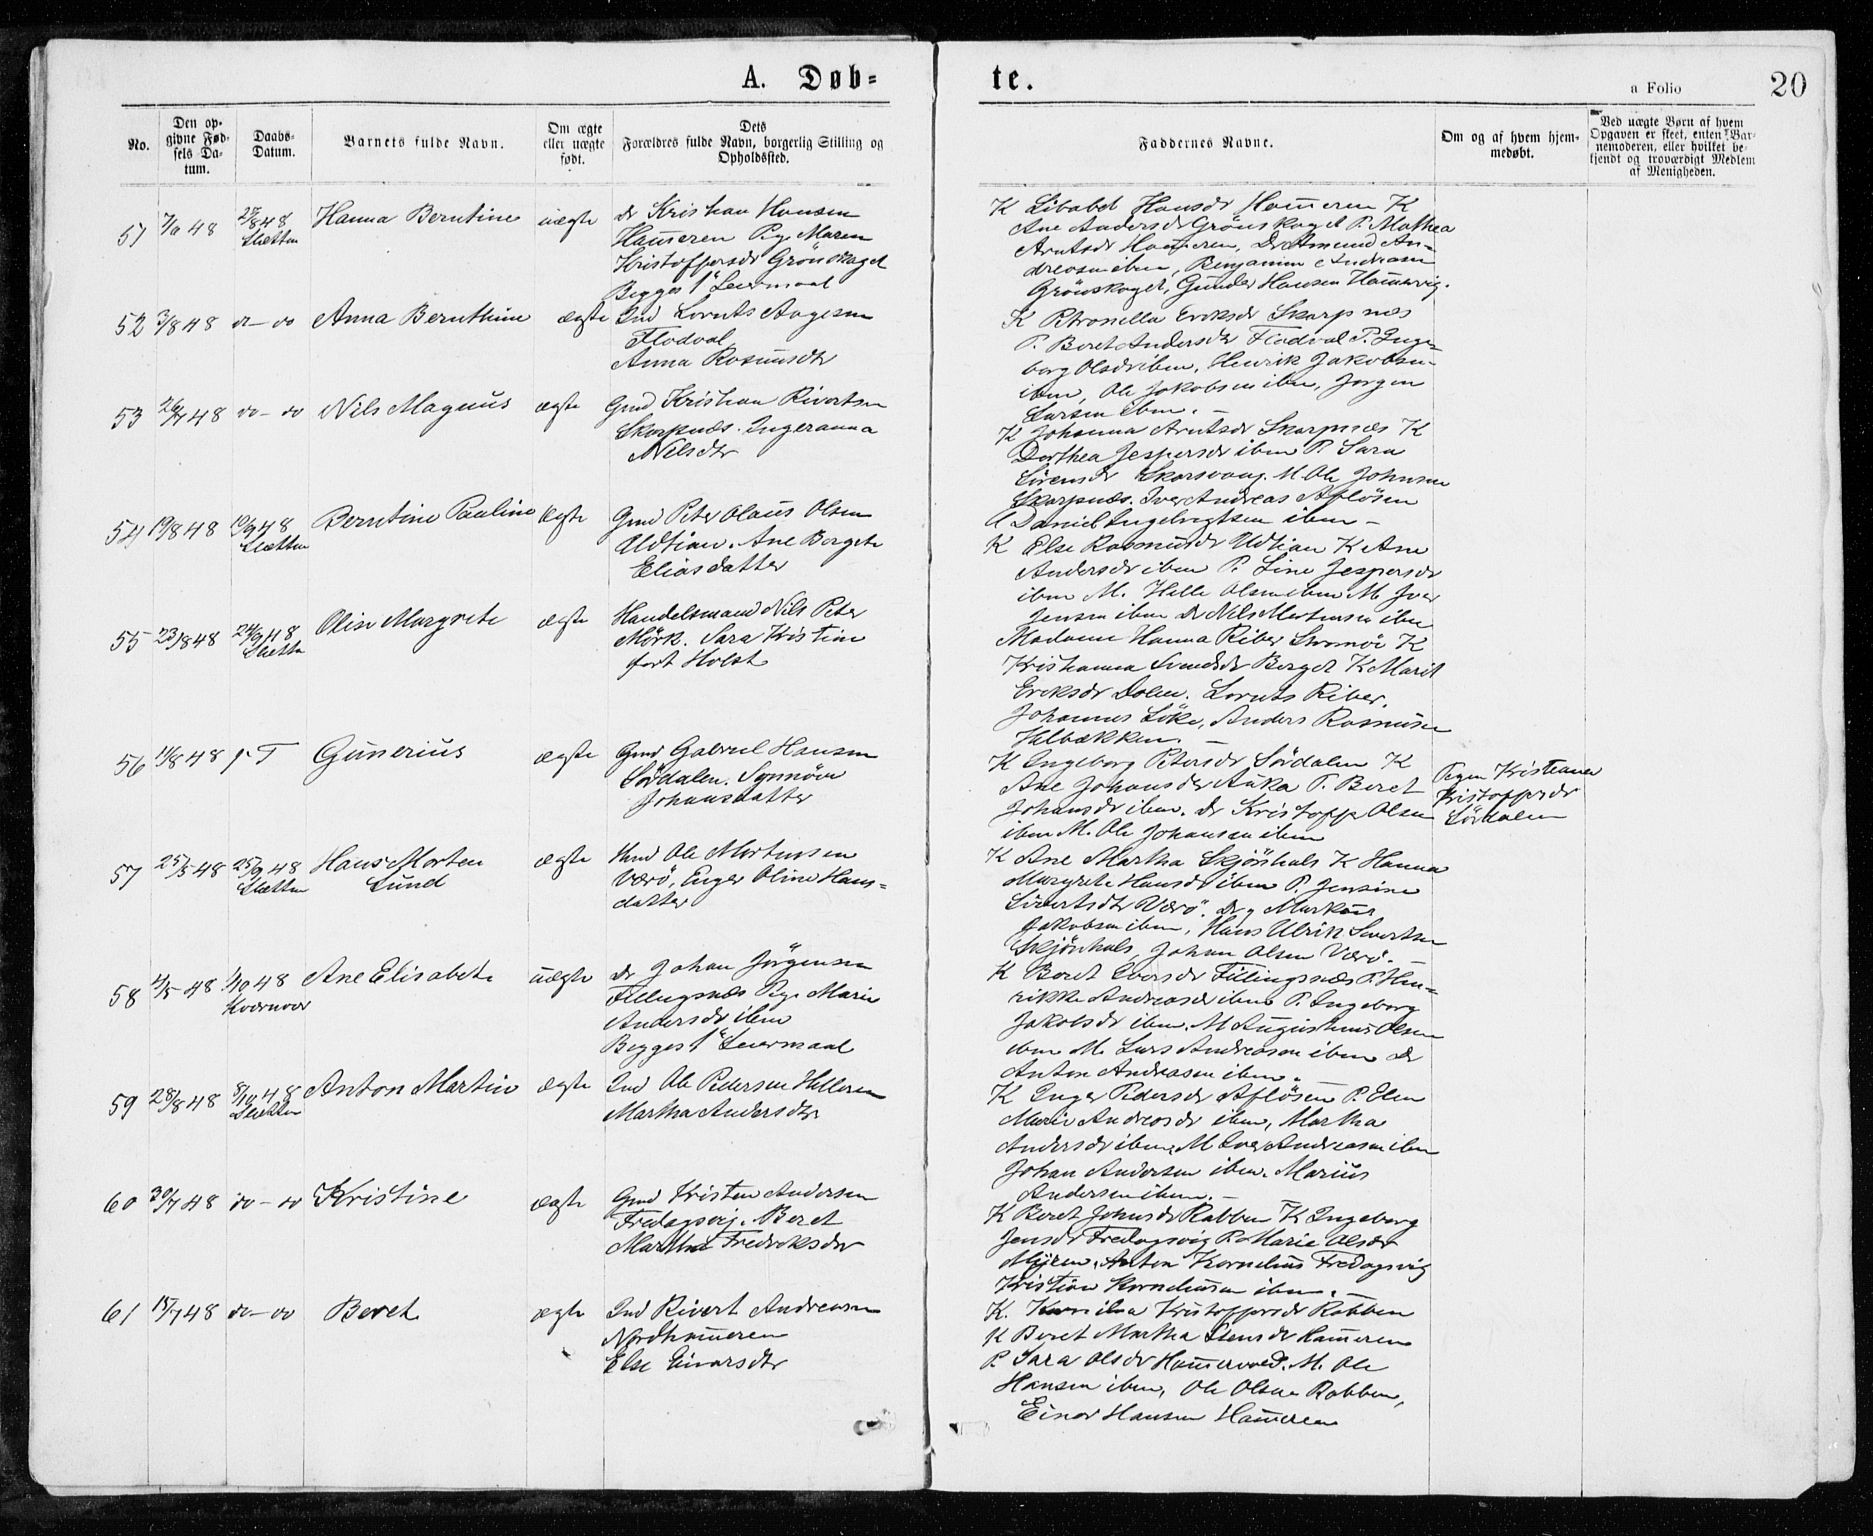 A. Døb-
te.
a Folio 20
No.
Den op-
givne Fød-
sels Da-
tum.
Daabs-
Datum.
Barnets fulde Navn.
Om ægte
eller uægte
født.
Dets
Forældres fulde Navn, borgerlig Stilling og
Opholdssted.
Faddernes Navne.
Om og af hvem hjem-
medøbt.
Ved uægte Børn af hvem
Opgaven er skeet, enten Bar-
nemoderen, eller hvilket be-
kjendt og troværdigt Medlem
af Menigheden.
51 48 27/8 48 Slætten Hanna Berntine uægte Dr Kristian Hansen
Ham̄eren Pig. Maren
Kristoffersdr Grönskaget
Begges 1ste Leiermaal
K Hansdr Ham̄eren K
Ane Andersdr Grönskaget P. Mathea
Arntsdr Ham̄eren, Dr Amund An-
dreasen ibm, Benjamin Andreasen
Grönskaget, Gunder Hansen Ham̄ervig.
52 3/8 48 do - do Anna Bernthine ægte Ind Lornts Aagesen
Flodval
Anna Rasmusdtr
K Petronella Eriksdr Skarpnes
P. Beret Andersdtr Flodval P. Inge-
borg Olsdr ibm, Henrik Jakobsen
ibm, Ole Jakobsen ibm, Jørgen
Larsen ibm. -
53 26/7 48 do - do Nils Magnus ægte Gmd Kristian Sivertsen
Skarpnæs. Ingeranna
Nilsdtr
K Johanna Arntsdr Skarpnæs K
Dorthea Jespersdr ibm P. Sara
Sörensdr Skarsvaag. M. Ole Johnsen
Skarpnæs. Iver Andreas Aflösen
Daniel Ingebrigtsen ibm -
54 19/8 48 10/9 48 Slætten Berntine Pauline ægte Gmd Peter Olaus Olsen
Udtian. Ane Bergete
Eliasdatter
K Else Rasmusdr Udtian K Ane
Andersdr ibm P. Line Jespersdr
ibm M. Helle Olsen ibm M. Iver
Jensen ibm Dr Nils Mortensen ibm
55 23/8 48 24/9 48 Slætten Oline Margrete ægte Handelsmand Nils Peter
Mörk. Sara Kristine
født Holst
Madame Hanna Riber Stromöi K
Kristianna Svendsdr Berget K Marit
Eriksdr Dolm. Lornts Riber,
Johannes Löke, Anders Rasmusen
Helbækken. -
56 11/8 48 Gunerius ægte Gmd Gabriel Hansen
Sördalen. Synnöve
Johansdatter
K Ingeborg Petersdr Sördalen K
Ane Johansdr Auka P. Beret
Johansdr ibm. Dr Kristoffer Olsen
ibm M. Ole Johansen ibm
Pigen Kristianna
Kristoffersdr
Sördalen
57 25/5 48 25/9 48 Slætten Hans Morten
Lund
ægte Hmd Ole Mortensen
Værö, Inger Oline Hans-
datter
K Ane Martha Skjönhals K Hanna
Margrete Hansdr ibm P. Jensine
Sivertsdtr Værö. Dr Markus
Jakobsen ibm, Hans Ulrik Sivertsen
Skjönhals, Johan Olsen Værö. -
58 4/5 48 1/10 48 Kvernvær Ane Elisabeth uægte Dr Johan Jörgensen
Fillingsnæs Pig. Marie
Andersdr ibm
Begges 1ste Leiermaal
K Beret Fillingsnæs P. Hen-
rikke Andreasdr ibm P. Ingeborg
Jakobsdr ibm. M Augustinus Olsen
ibm M. Lars Andreasen ibm Dr
Anton Andreasen ibm.
59 28/8 48 8/10 48 Slætten Anton Martin ægte Ind Ole Pedersen Helleren
Martha Andersdtr
K Inger Pedersdr Aflösen P. Elen
Marie Andreasdr ibm, Martha
Andersdr ibm, M Iver Andreasen ibm
Johan Andersen ibm. Marius
Andersen ibm. -
60 30/7 48 do - do Kristine ægte Gmd Kristen Andersen
Fredagsvig. Beret
Martha Fredriksdtr
K Beret Johnsdr Rabben K Ingeborg
Jensdr Fredagsvig P. Marie Olsdtr
Myren, Anton Kornelius Fredagsvig
Kristian Korneliusen ibm. -
61 15/7 48 do - do Beret ægte Ind Sivert Andreasen
Nordham̄eren
Else Einarsdtr
K. Kornilia Kristoffersdr Rabben
K Beret Martha Stensdr Ham̄eren
P. Sara Olsdr Ham̄ervold. M. Ole
Hansen ibm, Ole Olsen Rabben,
Einar Hansen Ham̄eren